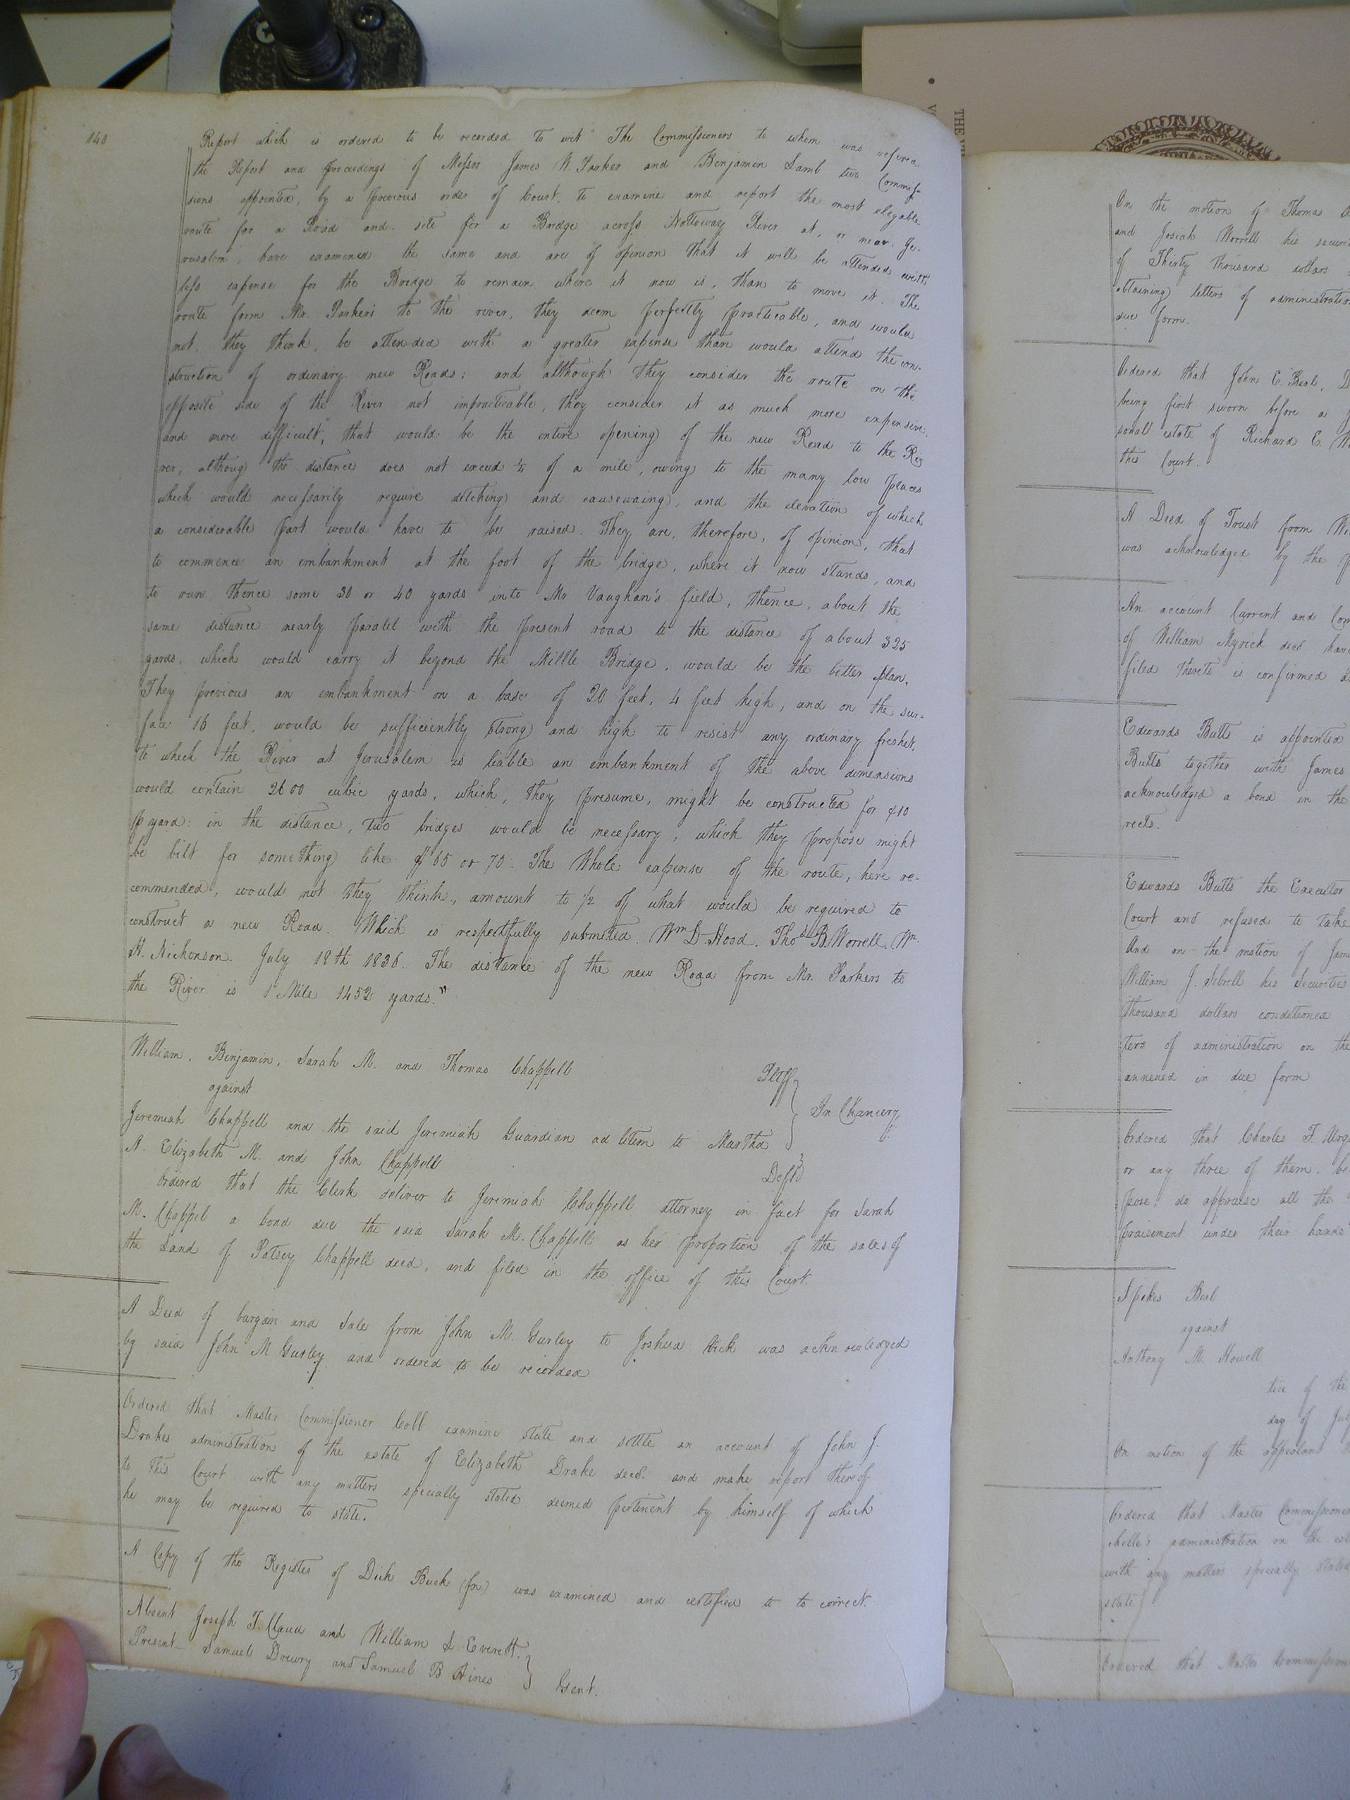 140
Report which is ordered to be recorded to wit "The Commissioners to whom was referred
the Report and proceedings of Messrs James W. Parker and Benjamin Lamb two Commis-
sions appointed, by a previous order of Court, to examine and report the most elegable
route for a Road and site for a Bridge across Nottoway River at, or near Je-
rusalem, have examined the same and are of opinion that it will be attended with
less expense for the Bridge to remain where it now is, than to move it. The
route form Mr. Parkers to the river, they deem perfectly practicable, and would
not, they think, be attended with a greater expense than would attend the con-
struction of ordinary new Roads; and although they consider the route on the
opposite side of the River not impracticable, they consider it as much more expensive
and more difficult, that would be the entire opening of the new Road to the Ri-
ver, althoug the distance does not exceed ½ of a mile, owing to the many low places
which would necessarily require ditching and causewaing, and the elevation of which
a considerable part would have to be raised. They are, therefore, of opinion, that
to commence an embankment at the foot of the bridge, where it now stands, and
to run thence some 30 or 40 yards into Mr Vaughan's field, thence, about the
same distance nearly paralel with the present road to the distance of about 325
yards, which would carry it beyond the Millle Bridge, would be the better plan.
They previous an embankment on a base of 20 feet, 4 feet high, and on the sur-
face 16 feet, would be sufficiently strong and high to resist any ordinary freshet,
to which the River at Jerusalem is liable an embankment of the above dimensions
would contain 2600 cubic yards, which, they presume, might be constructed for
p yard: in the distance, two bridges would be necessary, which they propose might
be bilt for something like $65 or 70. The Whole expense of the route, here re-
commended, would not they think, amount to ½ of what would be required to
construct a new Road. Which is respectfully submitted. Wm D. Hood, Thos B. Worrell, Wm.
H. Nickonson July 18th 1836. The distance of the new Road from Mr. Parkers to
the River is 1 Mile 1452 yards."
William, Benjamin, Sarah M. and Thomas Chappell Pltff
against
In Chancery
Jeremiah Chappell and the said Jeremiah Guardian ad litem to Martha
A. Elizabeth M. and John Chappell Defts
Ordered that the Clerk deliver to Jeremiah Chappell attorney in fact for Sarah
M. Chappel a bond due the said Sarah M. Chappell as her proportion of the sales of
the Land of Patsey Chappell deced, and filed in the office of this Court.
A Deed of bargain and sale from John M. Gurley to Joshua Hick was acknowledged
by said John M Gurley and ordered to be recorded
Ordered that Master Commissioner Cobb examine state and settle an account of John J.
Drakes administration of the estate of Elizabeth Drake deed. and make report thereof
to this Court with any matters specially stated deemed pertinent by himself of which
he may be required to state.
A Copy of the Register of Dick Buck (fn) was examined and certified to to correct.
Absent Joseph T. Claud and William L Everett.
Present Samuel Drewry and Samuel B Hines } Gent.
On the motion of Thomas
and Josiah Worrell his securi
of Thirty thousand dollars
obtaining letters of administration
due form.
Ordered that John C. Beal,
being first sworn before a
small estate of Richard E.
this Court.
A Deed of Trust from
was acknowledged by the
An account Current and
of William Myrick deed
filed thereto is confirmed
Edwards Butts is appointed
Butts together with James
acknowledged a bond in the
rects.
Edwards Butts the Executor
Court and refused to take
And on the motion of
William J. Sebrell his Securities
thousand dollars conditioned
ters of administration on the
annexed in due form
Ordered that Charles F. Urq
or any three of them, be
pose, do appraise all the
praisement under their hands
Beal
against
Anthony M. Howell
tice of the
day of
On motion of the appelant
Ordered that Master Commissioner
administration on the
with any matters specially stated
state
Ordered that Master Commission